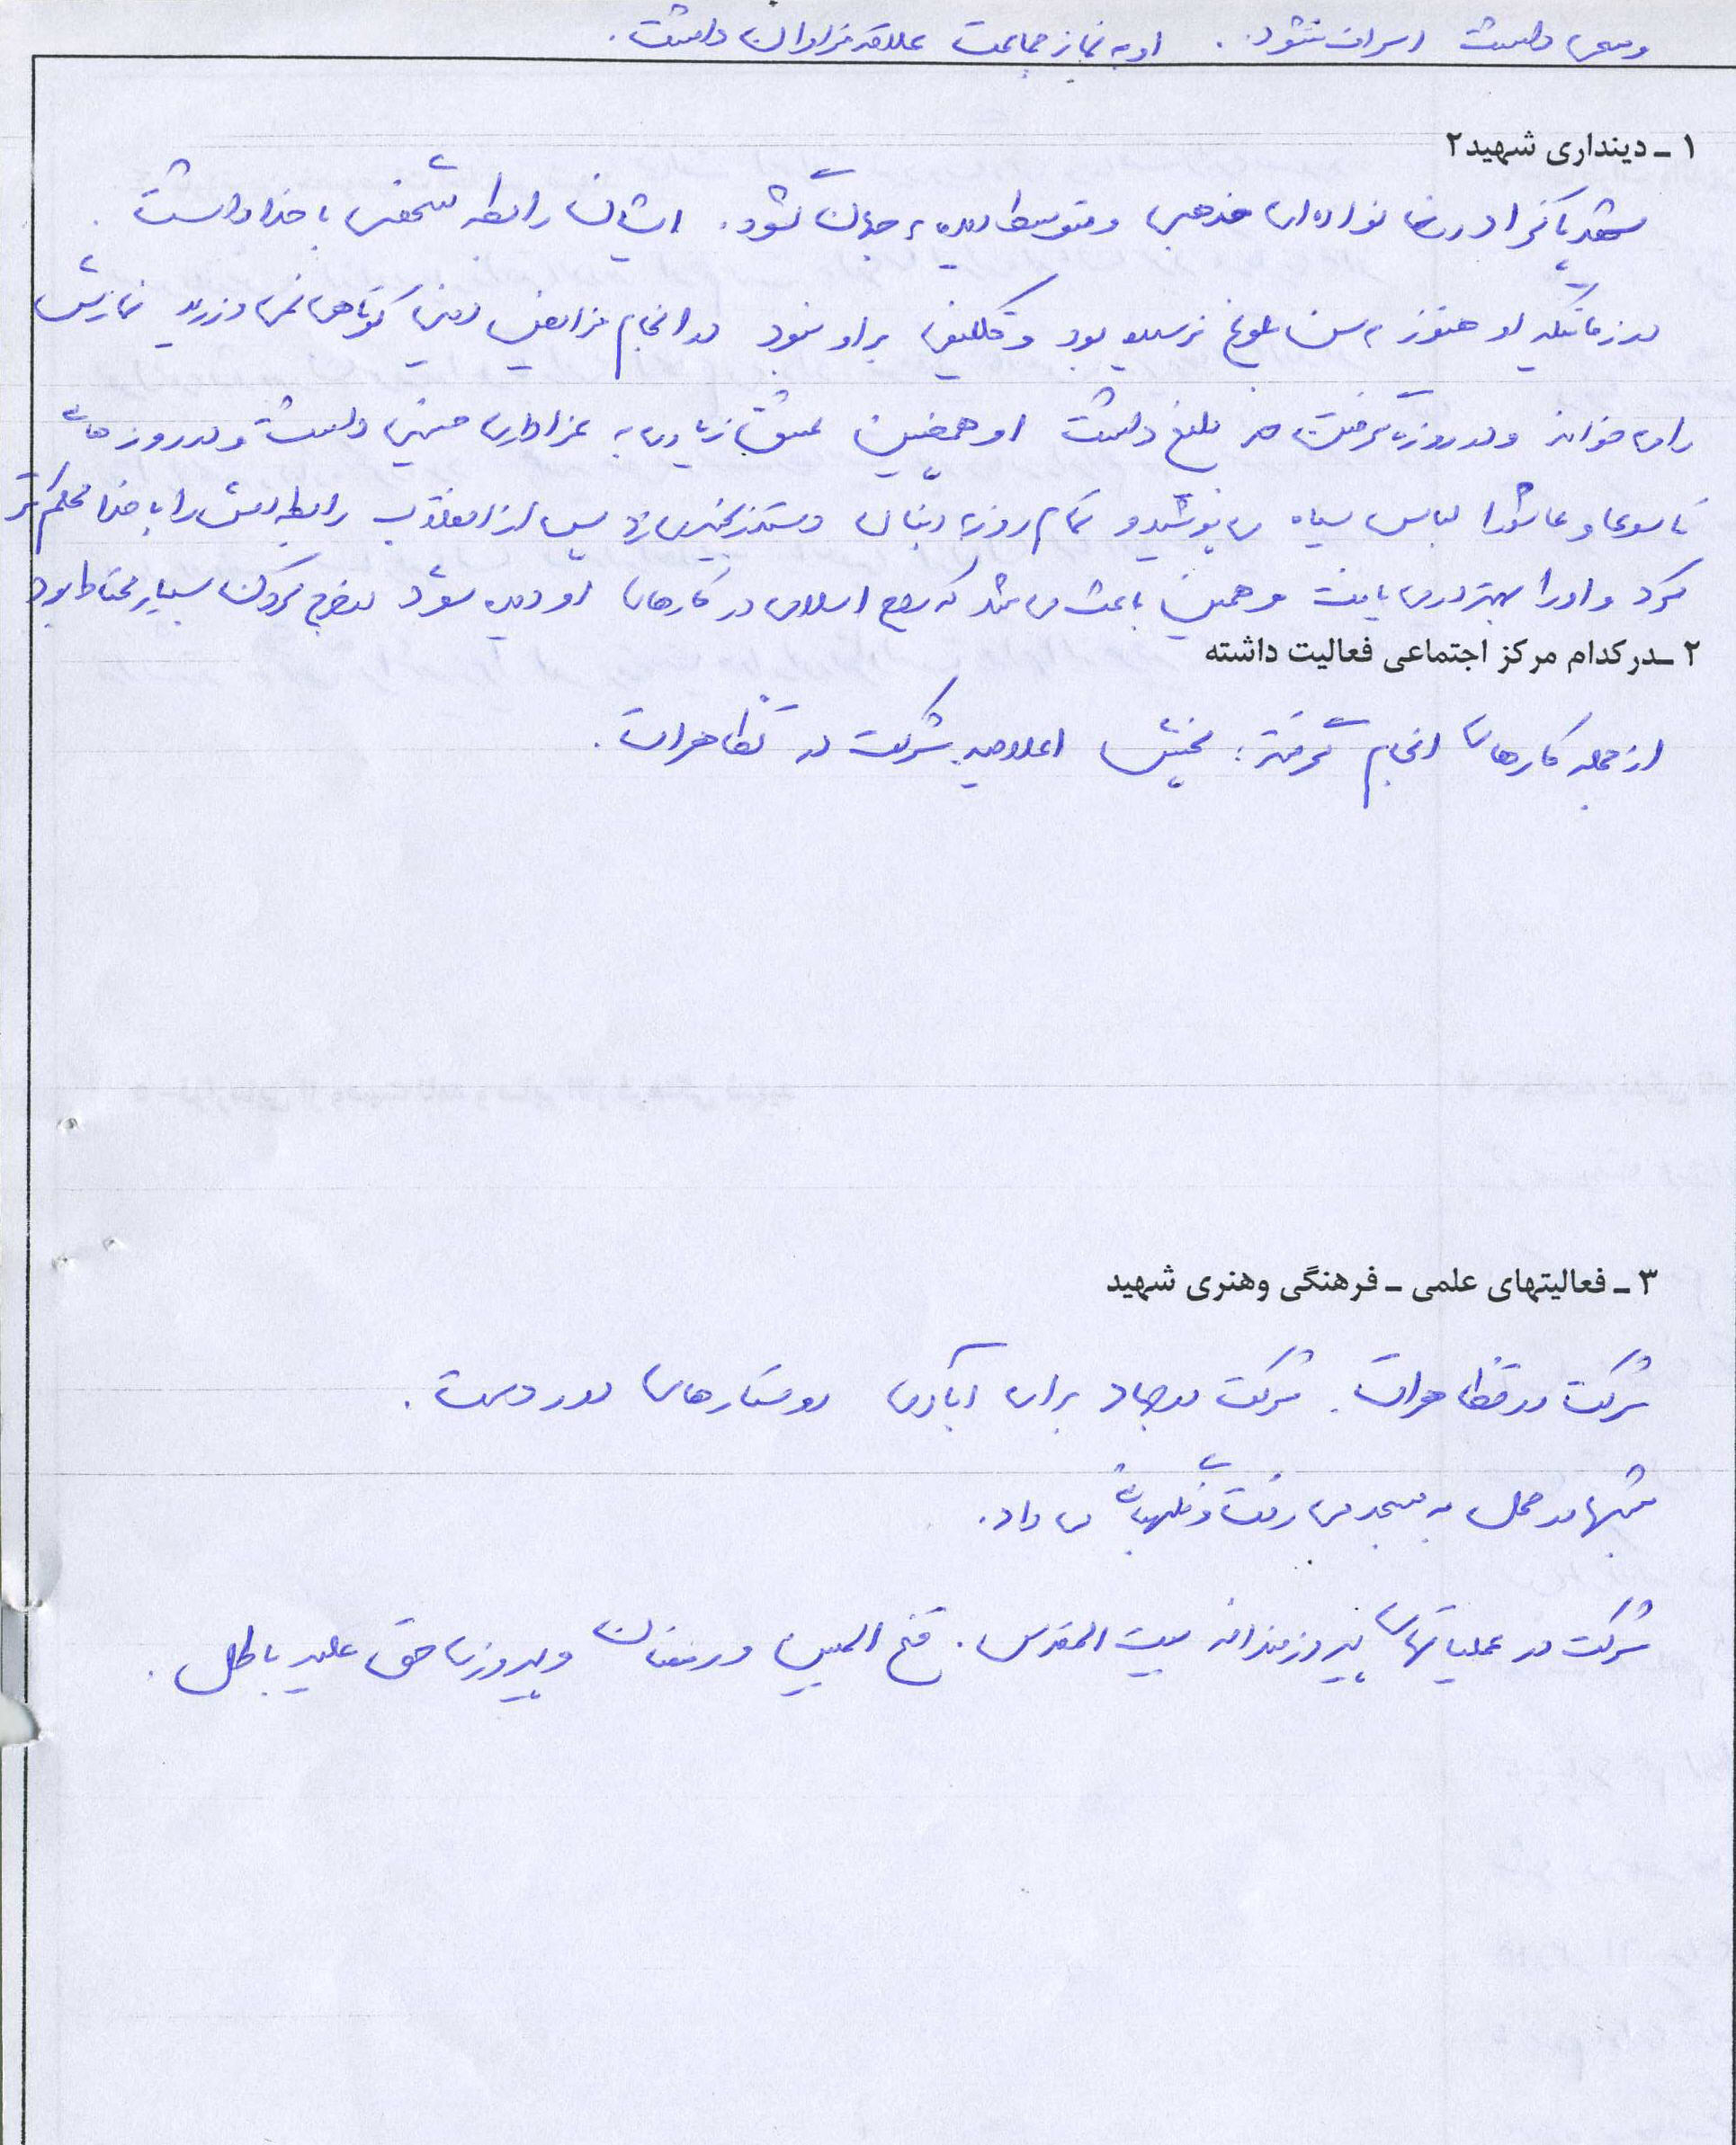 وسعی داشت اسراف نشود. او به نماز جماعت علاقه فراوان داشت.
۱ ـ دینداری شهید۲
شهید پاکنژاد در خانواده ای مذهبی و متوسط دیده به جهان گشود. ایشان رابطه شخصی با خدا داشت.
در زمانیکه او هنوز به سن بلوغ نرسیده بود و تکلیفی بر او نبود در انجام فرائض دینی کوتاهی نمی ورزید نمازش
را می خواند و در روزه گرفتن هم داشت او همچنین عشق زیادی به عزاداری حسینی داشت و در روزهای
تاسوعا و عاشورا لباس سیاه می پوشید و تمام روز به دنبال دسته زنجیرزنی پس از انقلاب رابطه اش را با خدا محکم تر
کرد و او را بهتر می یافت و همین باعث می شد که روح اسلامی در کارهای او دیده شود در خرج کردن بسیار محتاط بود
۲ ـدرکدام مرکز اجتماعی فعالیت داشته
از جمله کارهای انجام گرفته: پخش اعلامیه شرکت در تظاهرات.
۳ ـ فعالیتهای علمی ـ فرهنگی وهنری شهید
شرکت در تظاهرات. شرکت در جهاد برای آبادی روستارهای دور دست.
شبها در محل به مسجد می رفت و نگهبانی می داد.
شرکت در عملیاتهای پیروزمندانه بیت المقدس. فتح المبین و رمضان و پیروزی حق علیه باطل.